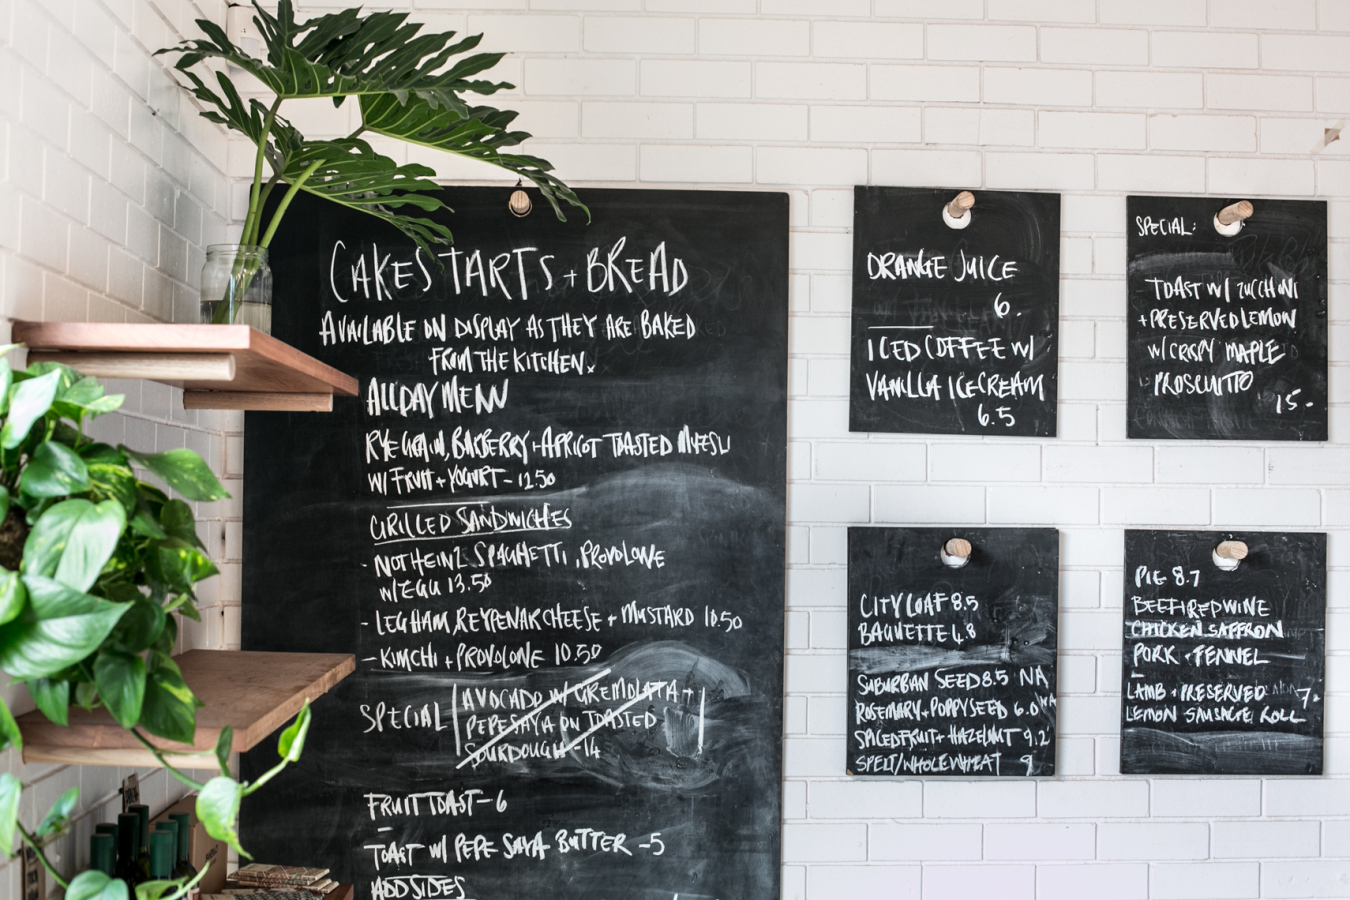 CAKES TARTS + BREAD
AVAILABLE ON DISPLAY AS THEY ARE BAKED
FROM THE KITCHEN.
ALLDAY MENU
RYE GRAIN, BARBERRY + APRICOT TOASTED MUESLI
W/ FRUIT + YOGURT - 12.50
GRILLED SANDWICHES
- NOT HEINZ SPAGHETTI, PROVOLONE
W/ EGG 13.50
- LEG HAM, REYPENAR CHEESE + MUSTARD 10.50
- KIMCHI + PROVOLONE 10.50
SPECIAL
AVOCADO W/ GREMOLATA +
PEPE SAYA ON TOASTED
SOURDOUGH - 14
FRUIT TOAST - 6
TOAST W/ PEPE SAYA BUTTER - 5
ADD SIDES
ORANGE JUICE
6.
ICED COFFEE W/
VANILLA ICECREAM
6.5
SPECIAL:
TOAST W/ ZUCCHINI
+ PRESERVED LEMON
W/ CRISPY MAPLE
PROSCUITTO
15-
CITY LOAF 8.5
BAGUETTE 4.8
SUBURBAN SEED 8.5 NA
ROSEMARY + POPPYSEED 6.0 NA
SPICED FRUIT + HAZELNUT 9.2
SPELT/WHOLEWHEAT 9
PIE 8.7
BEEF/REDWINE
CHICKEN SAFFRON
PORK + FENNEL
LAMB + PRESERVED 7-
LEMON SAUSAGE ROLL